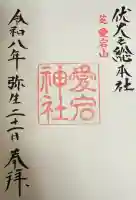 伏犬之総本社
英 愛宕山
愛宕神社
令和八年 弥生二十一日 奉拝